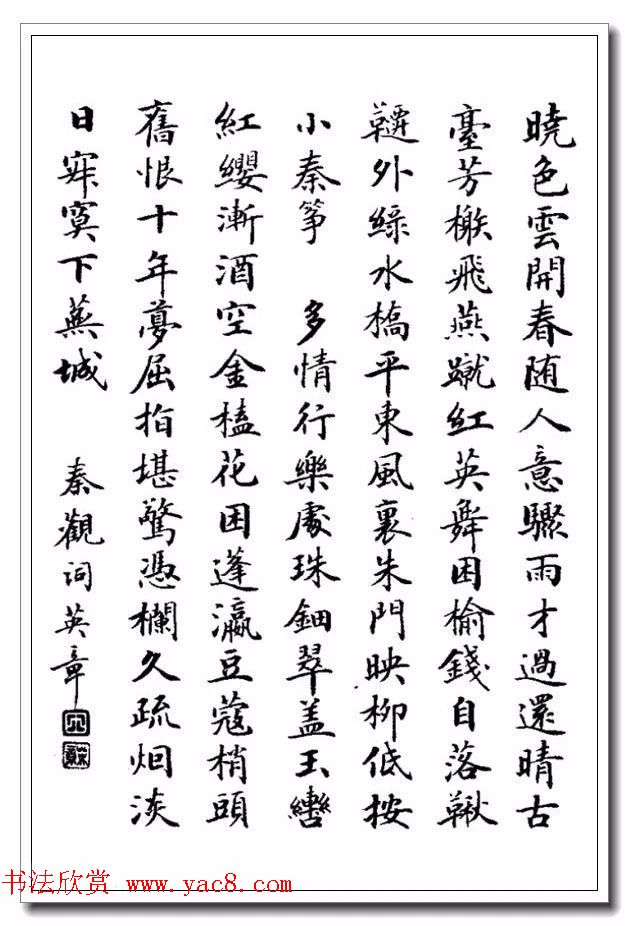 曉色雲開春随人意驟雨才過還晴古
臺芳榭飛燕蹴紅英舞困榆錢自落鞦
韆外綠水橋平東風裏朱門映柳低按
小秦筝 多情行樂處珠鈿翠盖玉轡
紅纓漸酒空金榼花困蓬瀛豆蔻梢頭
舊恨十年夢屈指堪驚憑欄久疏烟淡
日寂寞下蕪城 秦觀词英章
书法欣赏 www.yac8.com